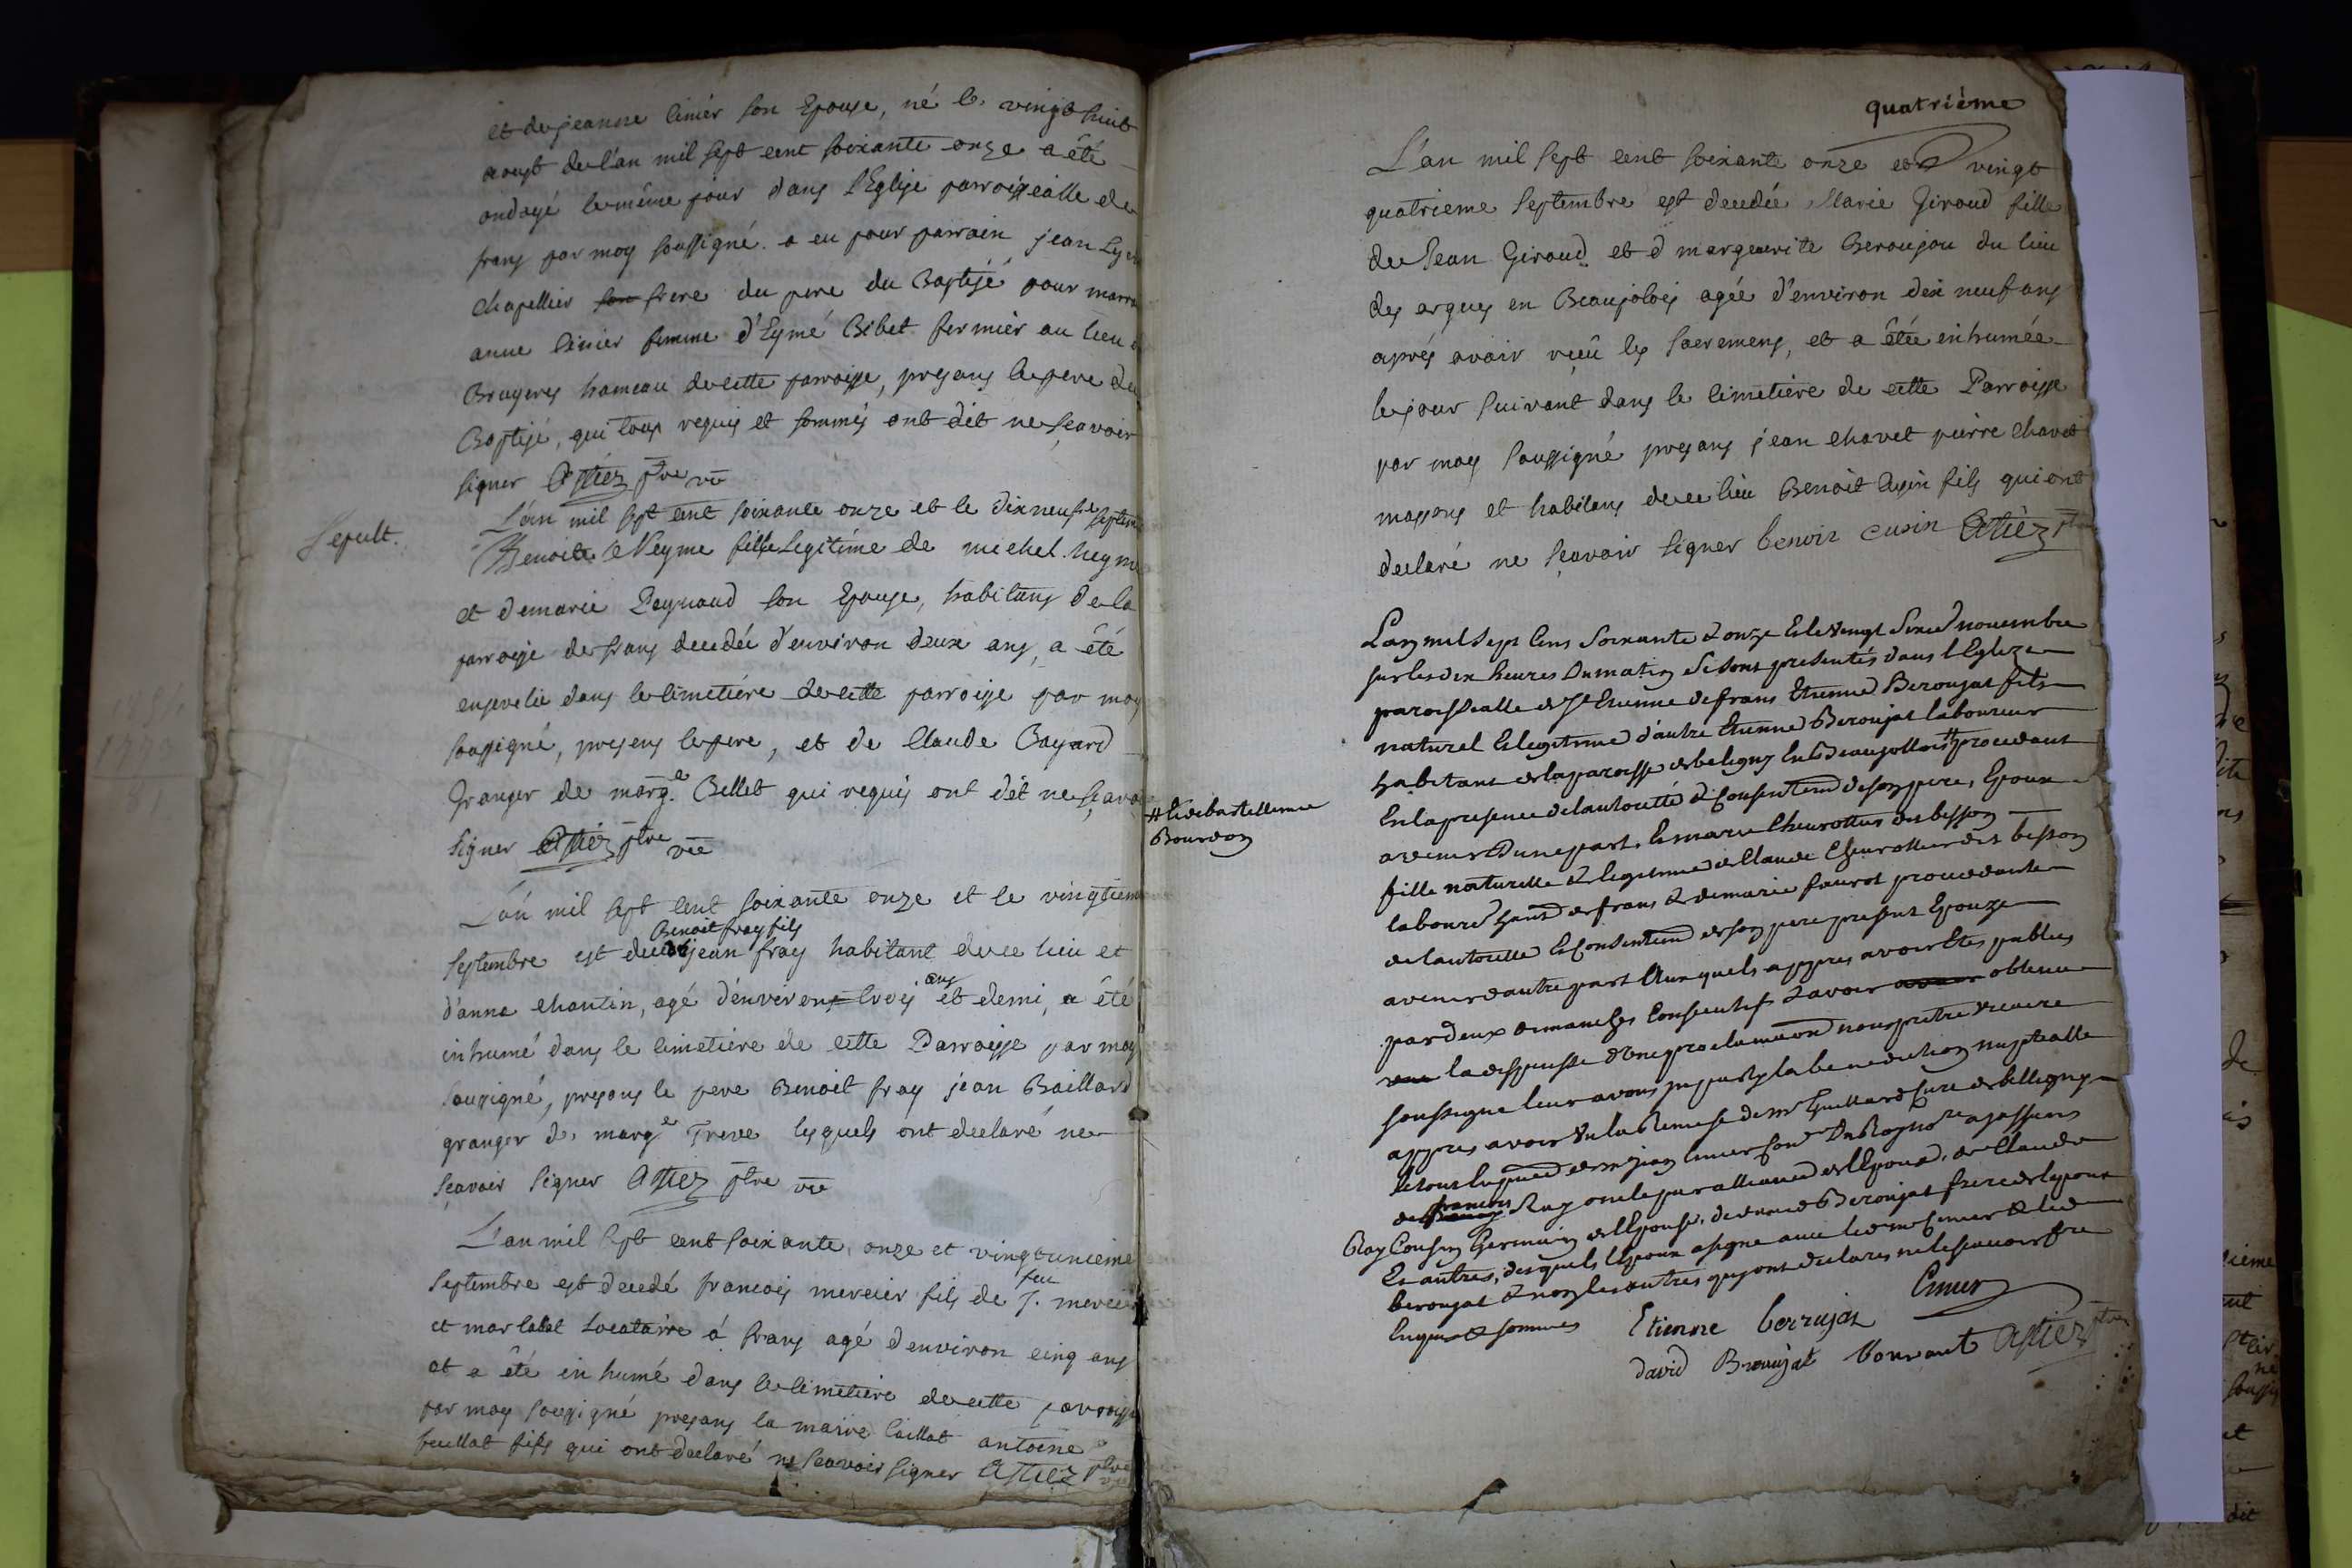 et de jeanne linier son Epouse, né le vingt huit
aoust de l'an mil sept cent soixante onze a été
ondoyé le même jour dans l'Eglise parroissialle de
frans par moy soussigné. a eu pour parrain jean
chapellier son frere du pere du Baptisé pour marra
anne linier femme d'Eymé Bibet fermier au lieu
Bruyeres hameau de cette parroisse, presans le pere du
Baptisé, qui tous requis et sommés ont dit ne sçavoir
signer Astiez ptre vic
Sepult.
L'an mil sept cent soixante onze et le dix neufe septem
Benoite Neyme fille Legitime de michel neyme
et de marie Paynaud son Epouse, habitans de la
parroisse de frans decedée d'environ deux ans, a été
ensevelie dans le cimetiére de cette parroisse par moy
soussigné, presens le pere, et de Claude Bayard
Granger de marg.e Billet qui requis ont dit ne sçavo
signer Astiez ptre vic
L'an mil sept cent soixante onze et le vingtiem
Benoit fray fils
septembre est decedé jean fray habitant de ce lieu et
d'anne chantin, agé d'environ trois ans et demi, a été
inhumé dans le cimetiére de cette Parroisse par moy
soussigné, presans le pere Benoit fray jean Baillard
granger de marg.e Treve lesquels ont declaré ne
sçavoir signer Astiez ptre vic
L'an mil sept cent soixante, onze et vingt unieme
septembre est decedé francois mercier fils de feu J. mercier
et mar labat Locataire á frans agé d'environ cinq ans
et a été inhumé dans le cimetiére de cette parroisse
par moy soussigné presans la maire Caillat antoine
feuillat fils qui ont declaré ne sçavoir signer Astiez ptre vic
quatriéme
L'an mil sept cent soixante onze et vingt
quatrieme septembre est decedée Marie Giroud fille
de Jean Giroud et d marguerite Beroujou du lieu
des argues en Beaujolois agée d'environ dix neuf ans
aprés avoir reçû les sacremens, et a étée inhumée
le jour suivant dans le cimetiére de cette Parroisse
par moy soussigné presans jean chavet pierre chavet
massons et habitans de ce lieu Benoit Cusin fils qui ont
declaré ne sçavoir signer benoit cusin Astiéz ptre
L'an mil sept cens soixante & onze & le vingt sixe novembre
sur les dix heures du matin se sont presentés dans l'Eglize
paroissialle de St Etienne de frans Etienne Beroujat fils
naturel & legitime d'autre Etienne Beroujat laboureur
habitant de la paroisse de beligny en Beaujollois # procedant
# & de bartellemie
Bourdon
En la presence de l'autorité & consentem de son pere, Epoux
avenir d'une part. & marie Cheurottier des besson
fille naturelle & legitime de Claude Cheurottier des besson
labour habant de frans & de marie fauvot procedante
de l'autorité & consentem de son pere present Epouze
avenir d'autre part auxquels appres avoir étés publies
par deux dimanches consecutif & avoir obtenu
la dispense d'une proclamation nous pretre vicaire
soussigne leur avons imparty la benediction nuptialle
appres avoir vu la Remise de mr Guillard Cure de bellegny
de francois Ray oncle par alliance de l'Epoux, de Claude
Ray Cousin Germain de l'Epouse, de david Beroujat frere de l'epoux
Et autres, desquels l'Epoux a signe avec led mr Cimier & led
beroujat & non les autres qui ont declares ne le scavoir fre
Enquis & sommes Etienne berrujat Cimier
david Brouujat Vouvant Astiez ptre